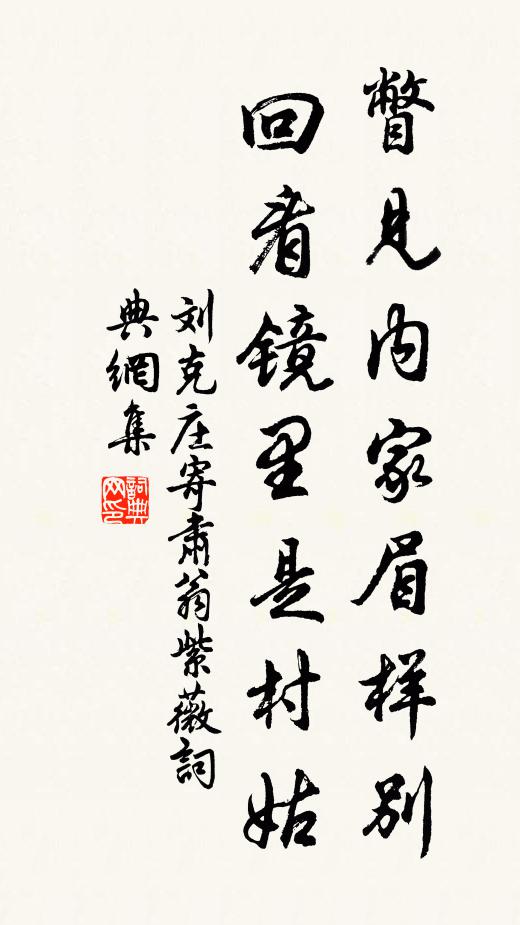 瞥见内家眉样别
回看镜里是村姑
刘克庄寄肃翁紫薇詞
典網集
詞典网印